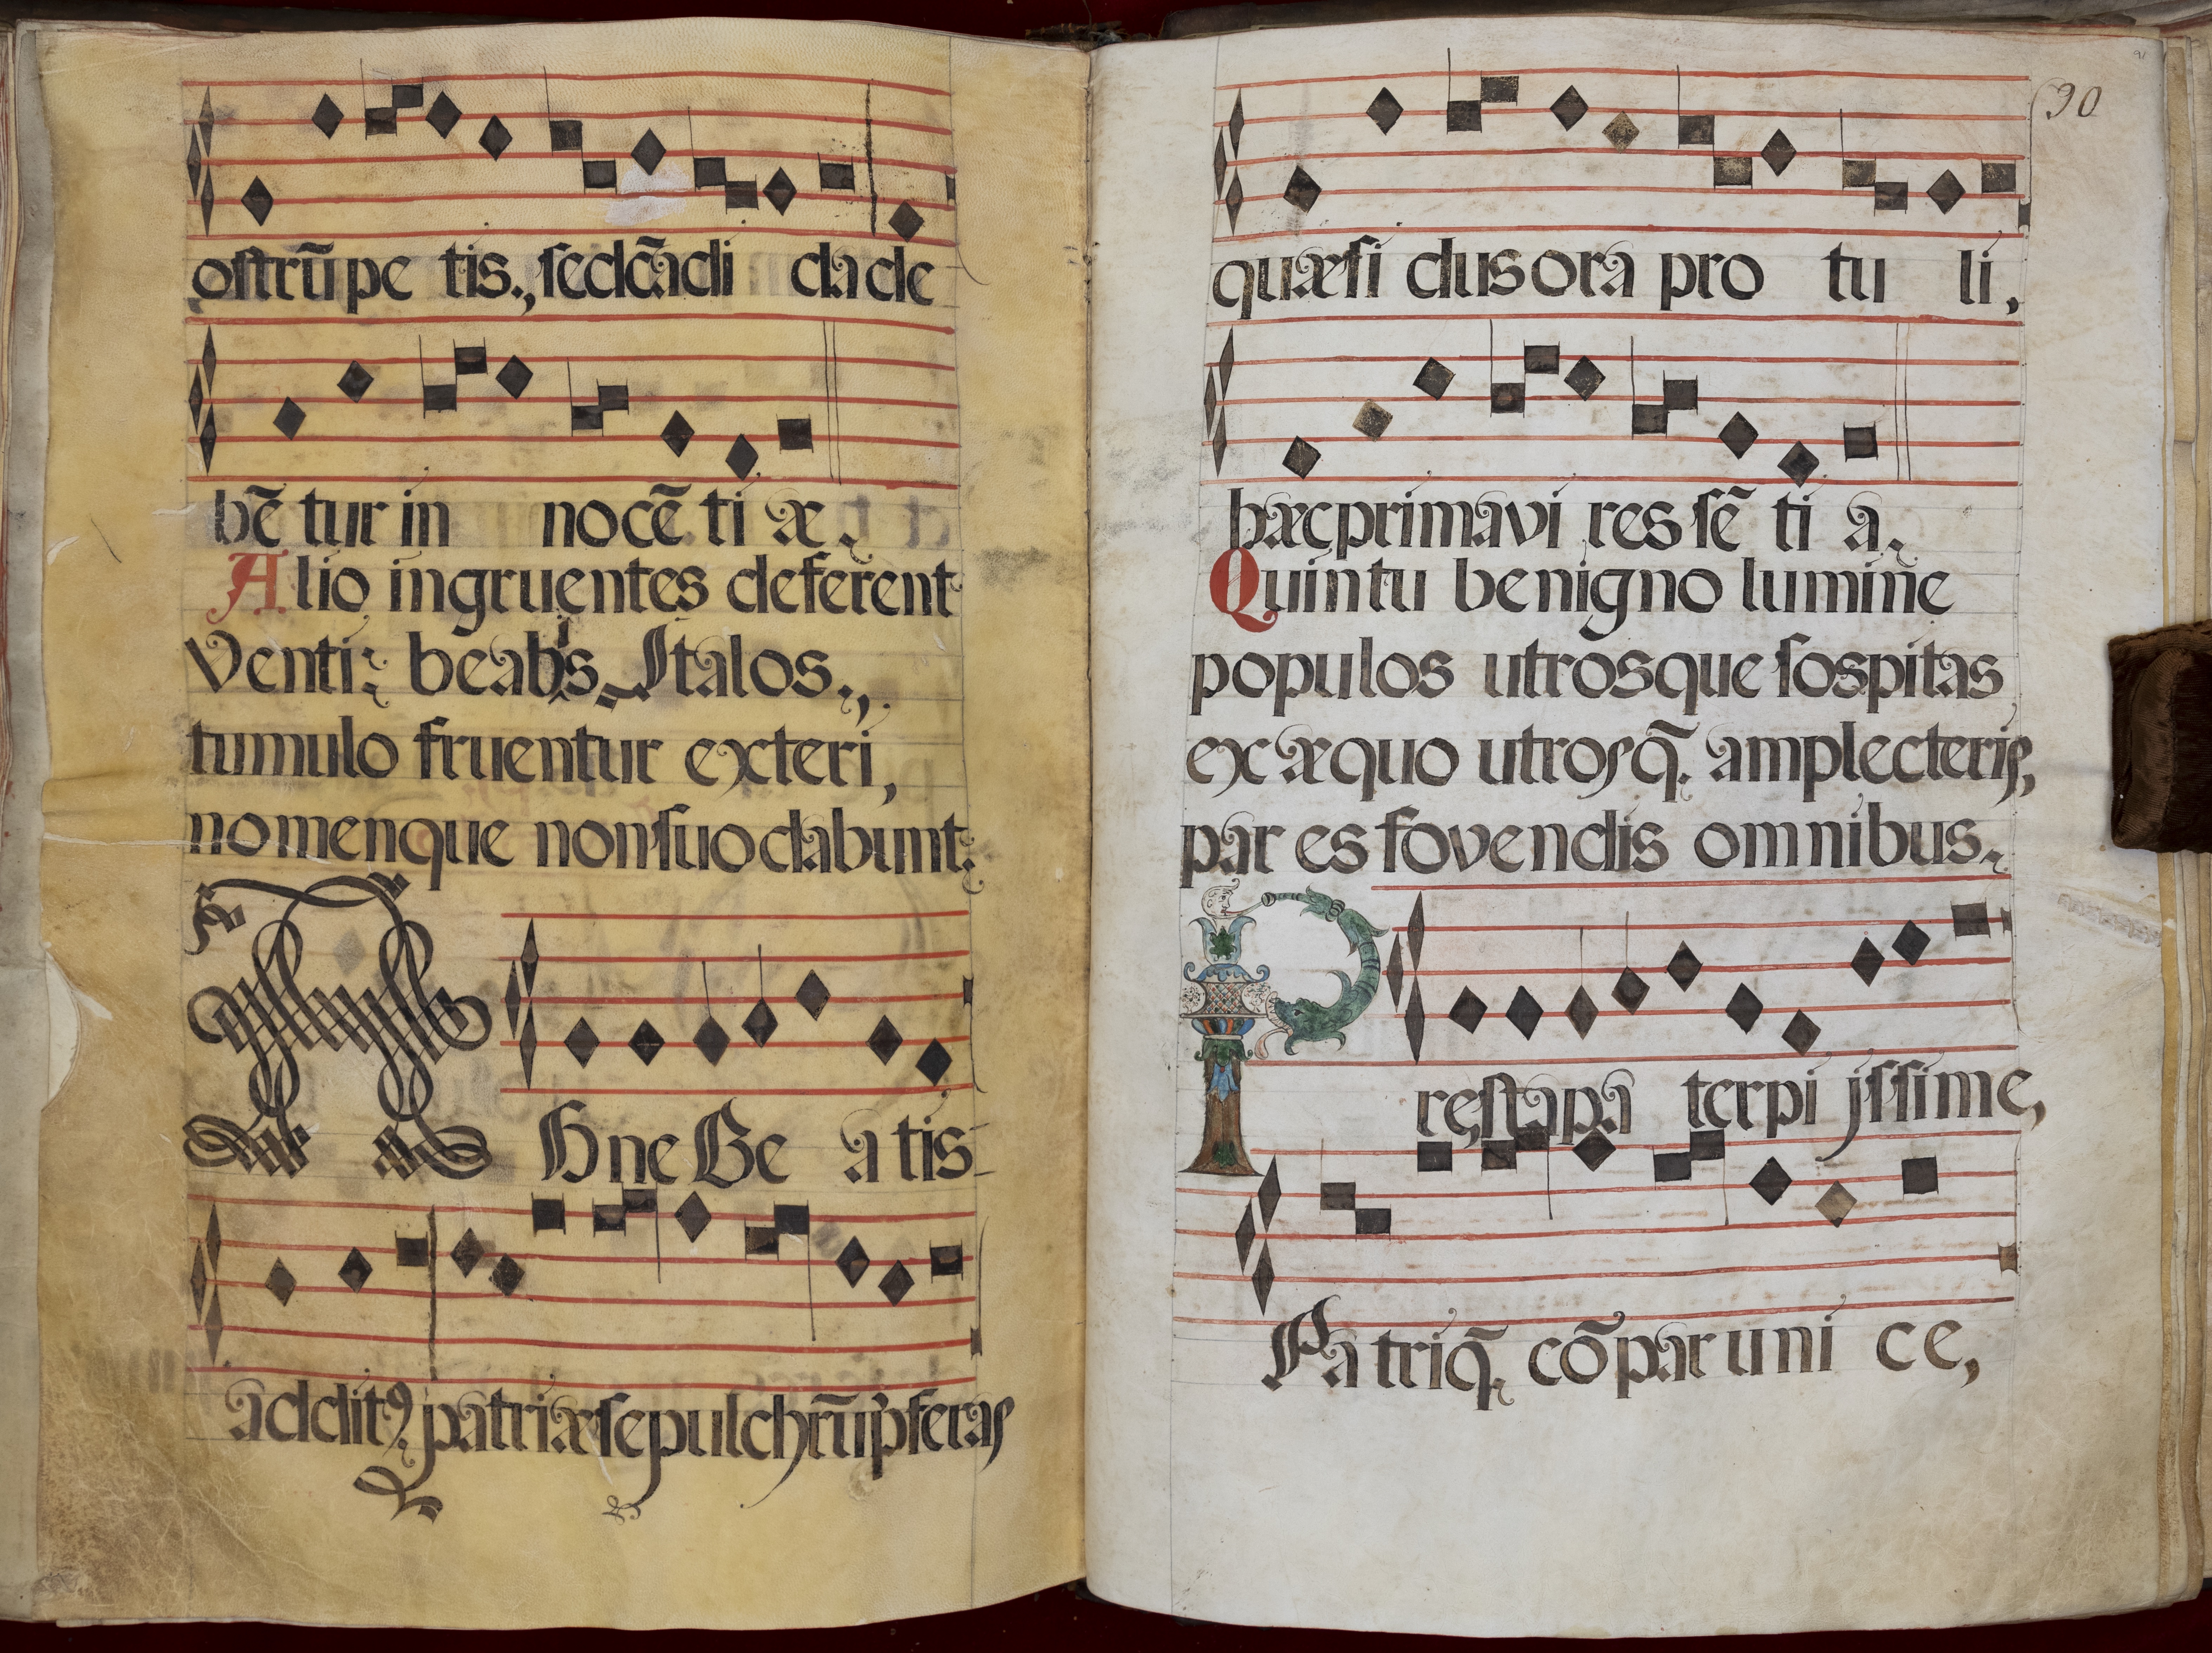 ostrũ pe tis., sed cãdi da de
bẽ tur in nocẽ ti æ.
Alio ingruentes deferent
Venti: beabis Italos.,
tumulo fruentur exteri,
nomenque non suo dabunt:
Hne Be a tis
addit9. patriæ sepulchrũ p̃feras
90
quæ si dus ora pro tu li,
hæc prima vi res sẽ ti a.
Quin tu benigno lumine
populos utrosque sospitas
ex æquo utrosq̃. amplecteris,
par es fovendis omnibus.
Præsta pa ter pi issime,
Pa triq̃. cõpar uni ce,